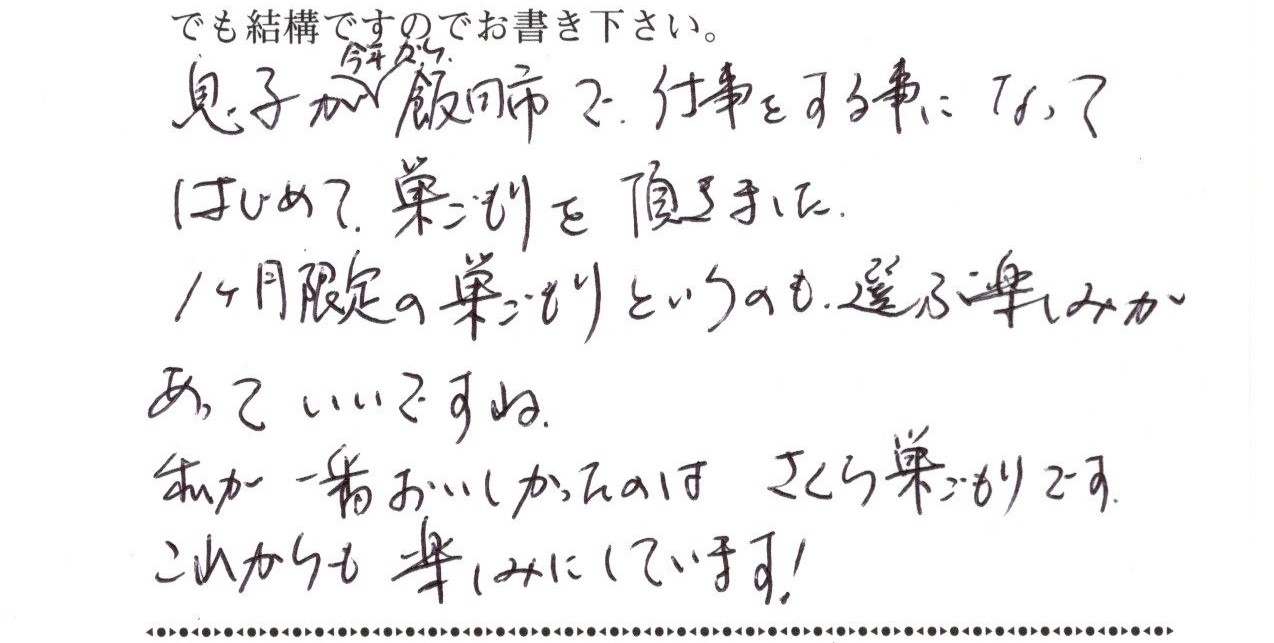 でも結構ですのでお書き下さい。
今年から
息子が飯田市で、仕事をする事になって
はじめて、巣ごもりを頂きました。
1ヶ月限定の巣ごもりというのも、選ぶ楽しみが
あっていいですね。
私が一番おいしかったのは さくら巣ごもりです。
これからも楽しみにしています!